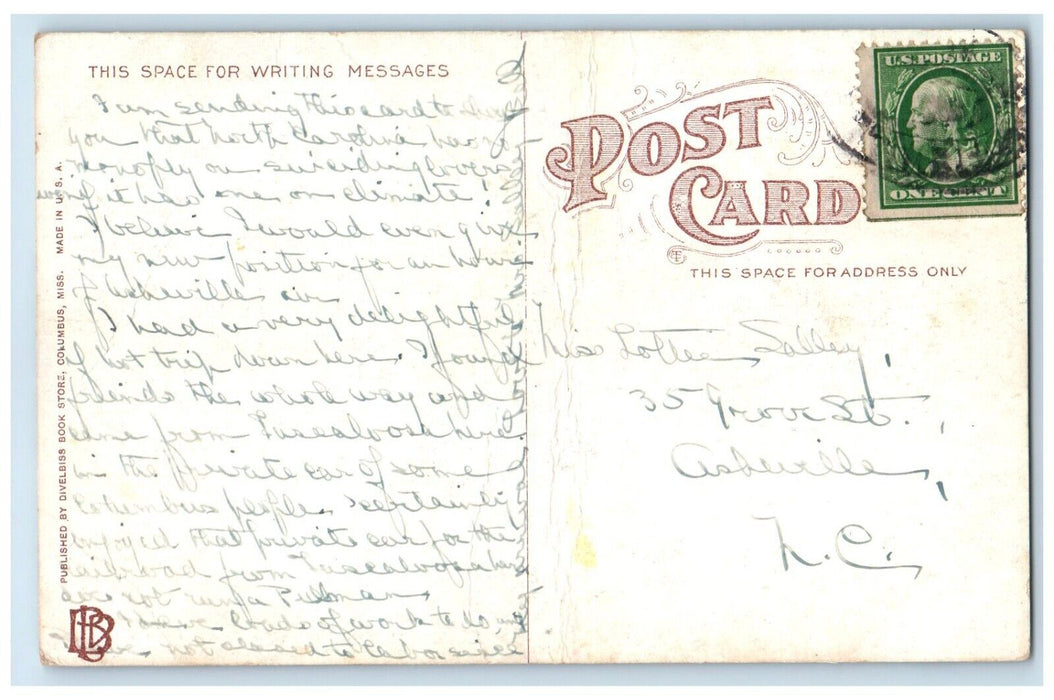 THIS SPACE FOR WRITING MESSAGES
I am sending this card to
you that North Carolina has no
on suiciding lovers
if it has one on climate.
I believe I would even give
my new position for an hour
of Asheville air
I had a very delightful
if hot trip down here. I found
friends the whole way and
came from Tuscaloosa here
in the private car of some
Columbus people. I certainly
enjoyed that private car for the
railroad from Tuscaloosa here
does not run a Pullman
I have loads of work to do, and
have not ceased to labor since
PUBLISHED BY DIVELBISS BOOK STORE, COLUMBUS, MISS. MADE IN U. S. A.
DLB
POST CARD
THIS SPACE FOR ADDRESS ONLY
U.S. POSTAGE
ONE CENT
Miss Lottie Salley,
35 Grove St.,
Asheville,
N.C.